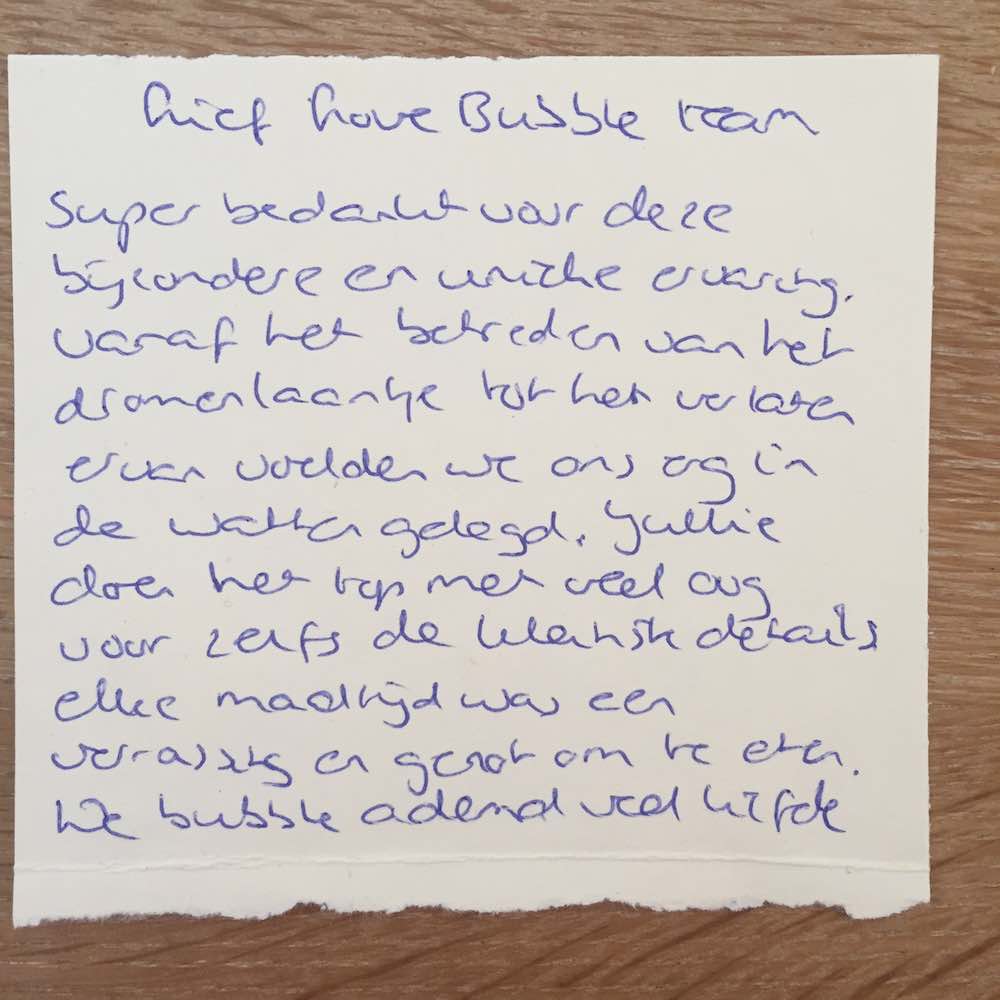 Lief Love Bubble team
Super bedankt voor deze
bijzondere en unieke ervaring.
vanaf het betreden van het
dromenlaantje tot het verlaten
ervan voelden we ons erg in
de watten gelegd. Jullie
doen het top met veel oog
voor zelfs de kleinste details
elke maaltijd was een
verrassing en genot om te eten.
De bubble ademd veel liefde